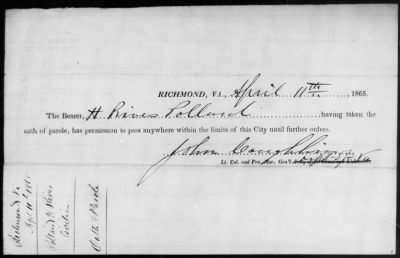 RICHMOND, VA., April 11th 1865.
The Bearer, H Rives Pollard having taken the
oath of parole, has permission to pass anywhere within the limits of this City until further orders.
John Coughlin
Lt. Col. and Pro. Mar. Gen'l
Richmond Va
Apr 11th 1865
Pollard H Rives
Citizen
Oath & Parole